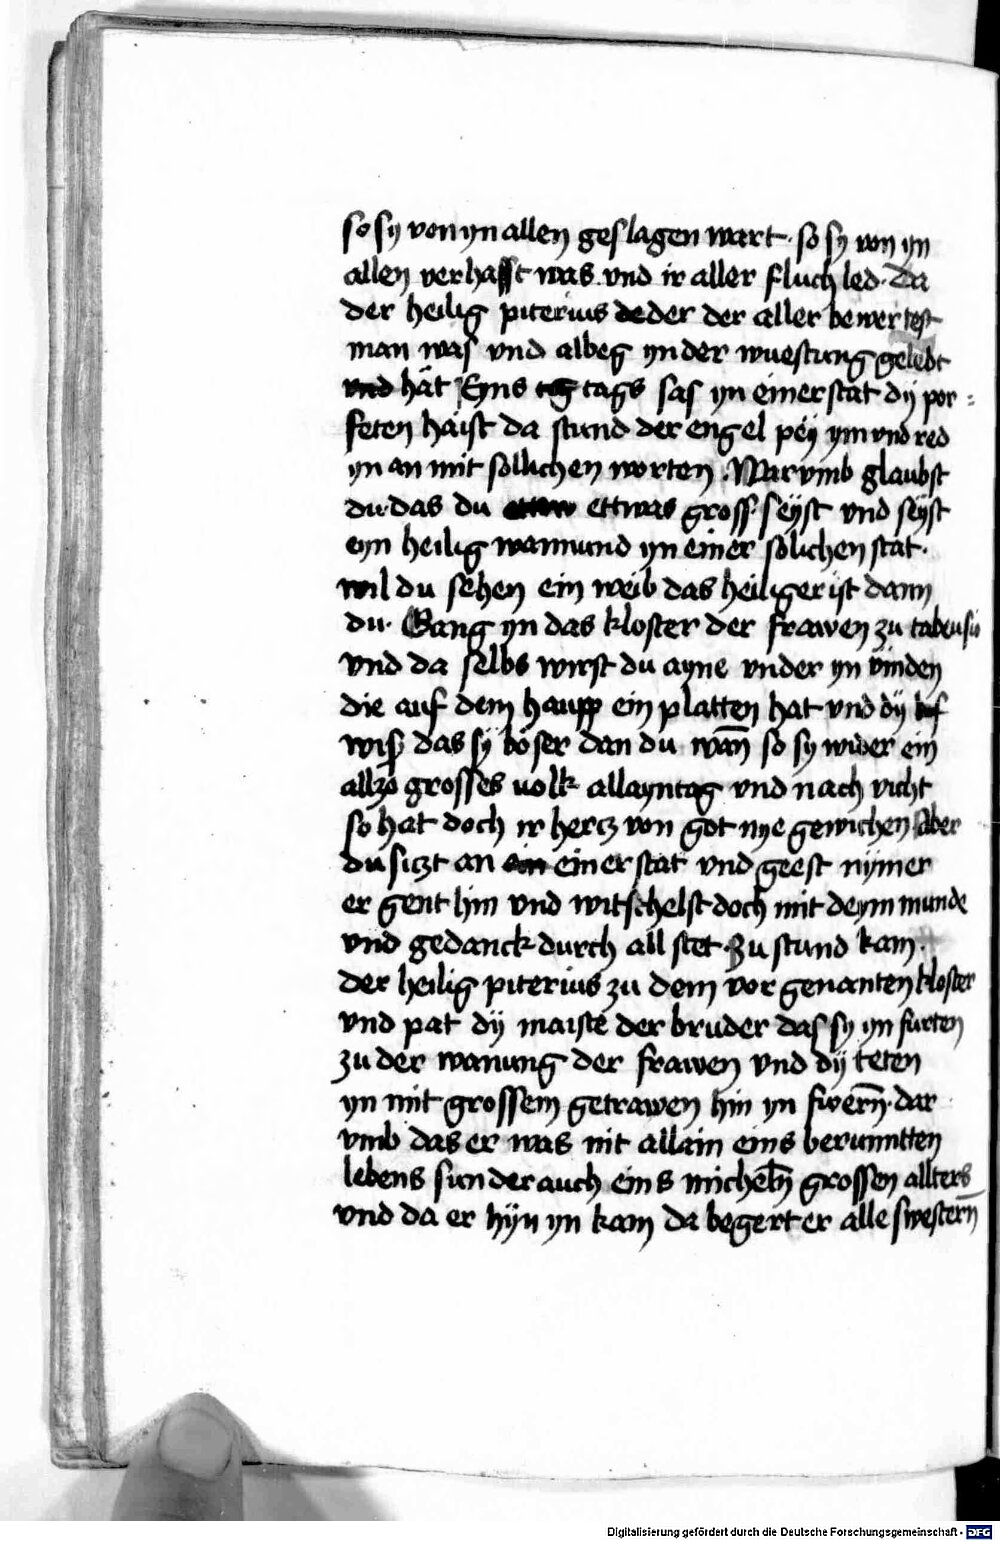 so sy von yn allen geslagen wart · so sy von yn
allen verhasst was vnd ir aller fluch led · da
der heilig piterius der der aller bewertest
man was vnd albeg yn der wuestung gelebt
hät Eyns tags sas yn einer stat dÿ por =
feten haist da stund der engel peÿ ym vnd red
yn an mit sollichen worten · Warvmb glaubst
du · das du ettwas gross seÿst vnd seÿst
eyn heilig wannund yn einer solichen stat ·
wil du sehen ein weib das heiliger ist dann
du · Gang yn das kloster der frawen zu tabensii
vnd da selbs wirst du ayne vnder yn vinden
die auf dem haupp ein platten hat vnd dÿ
wiss das sÿ böser dan du wan̄ so sy wider ein
allzo grosses uolk allayntag vnd nach vicht
so hat doch ir hercz von got nye gewichen Aber
du siczt an einer stat vnd geest nÿmer
er gent hin vnd witschelst doch mit deym munde
vnd gedanck durch all stet · Zu stund kam ·
der heilig piterius zu dem vor genanten kloster
vnd pat dÿ maiste der bruder das sy yn furten
zu der wanung der frawen vnd dÿ teten
yn mit grossem getrawen hin yn fwern̄ · dar
vmb das er was nit allain eins berumtten
lebens sunder auch eins micheln̄ grossen allters
vnd da er hÿn yn kam da begert er alle swestern̄
Digitalisierung gefördert durch die Deutsche Forschungsgemeinschaft - DFG